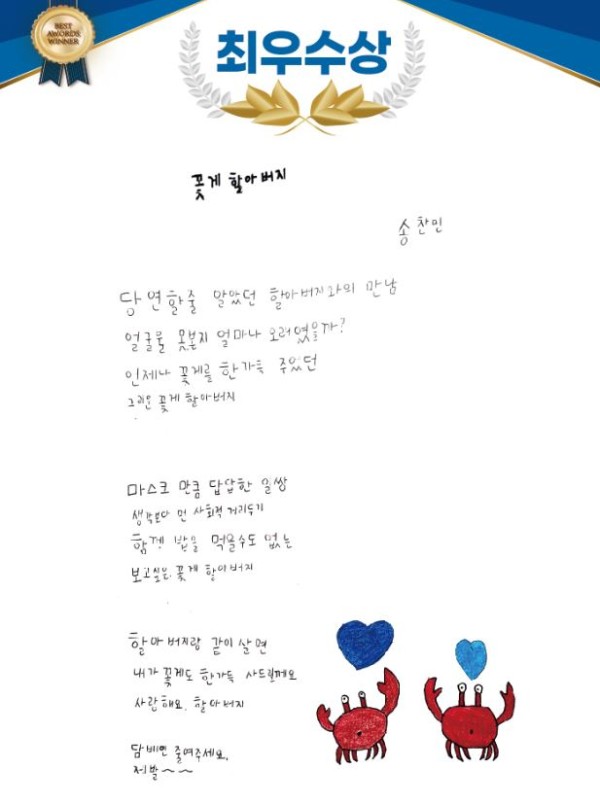 BEST
AWORDS
WINNER
최우수상
꽃게 할아버지
송찬민
당연할줄 알았던 할아버지와의 만남
얼굴을 못본지 얼마나 오러였을까?
언제나 꽃게를 한가득 주었던
그리운 꽃게 할아버지
마스크 만큼 답답한 일쌍
생각보다 먼 사회적 거리두기
함께 밥을 먹을수도 없는
보고싶은 꽃게 할아버지
할아버지랑 같이 살면
내가 꽃게도 한가득 사드릴께요
사랑해요. 할아버지
담배만 줄여주세요.
제발~~